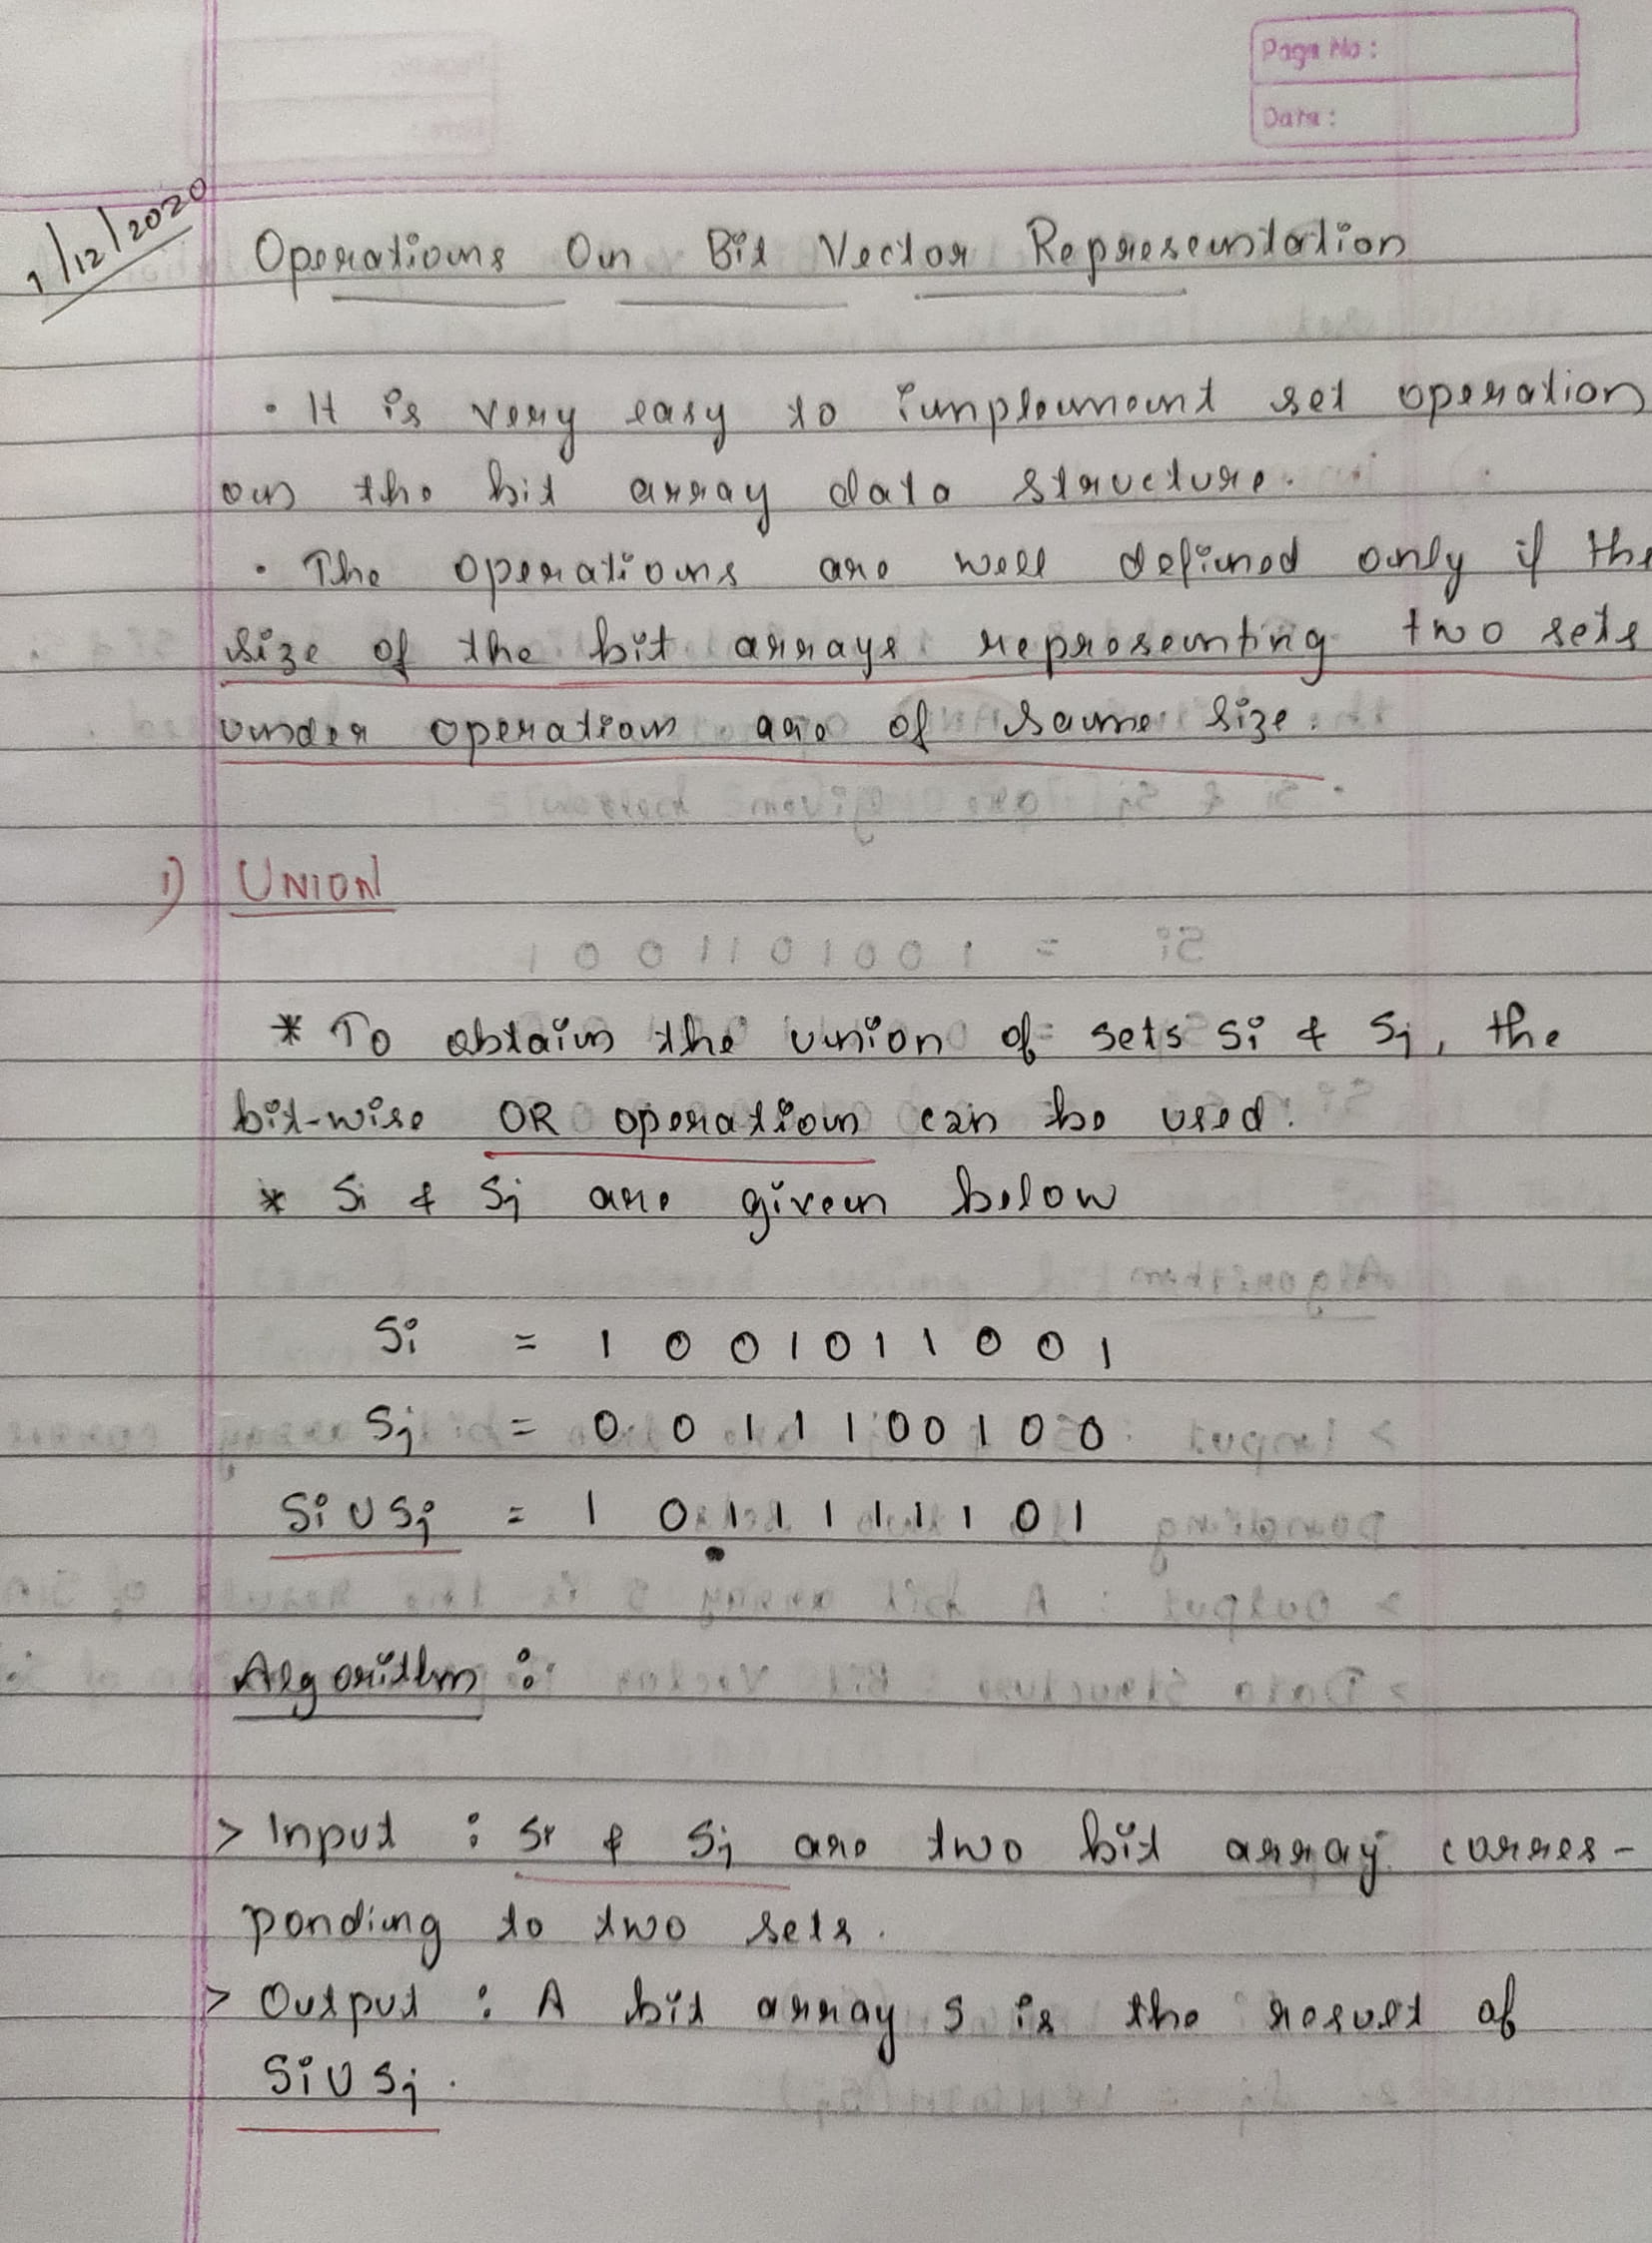 Page No :
Date :
1/12/2020
Operations On Bit Vector Representation
• It is very easy to implement set operation
on the bit array data structure.
• The operations are well defined only if the
size of the bit arrays representing two sets
under operation are of same size.
1) UNION
* To obtain the union of sets Si & Sj, the
bit-wise OR operation can be used.
* Si & Sj are given below
Si = 1 0 0 1 0 1 1 0 0 1
Sj = 0 0 1 1 1 0 0 1 0 0
Si U Sj = 1 0 1 1 1 1 1 1 0 1
Algorithm :
> Input : Si & Sj are two bit array corres-
ponding to two sets.
> Output : A bit array S is the result of
Si U Sj.